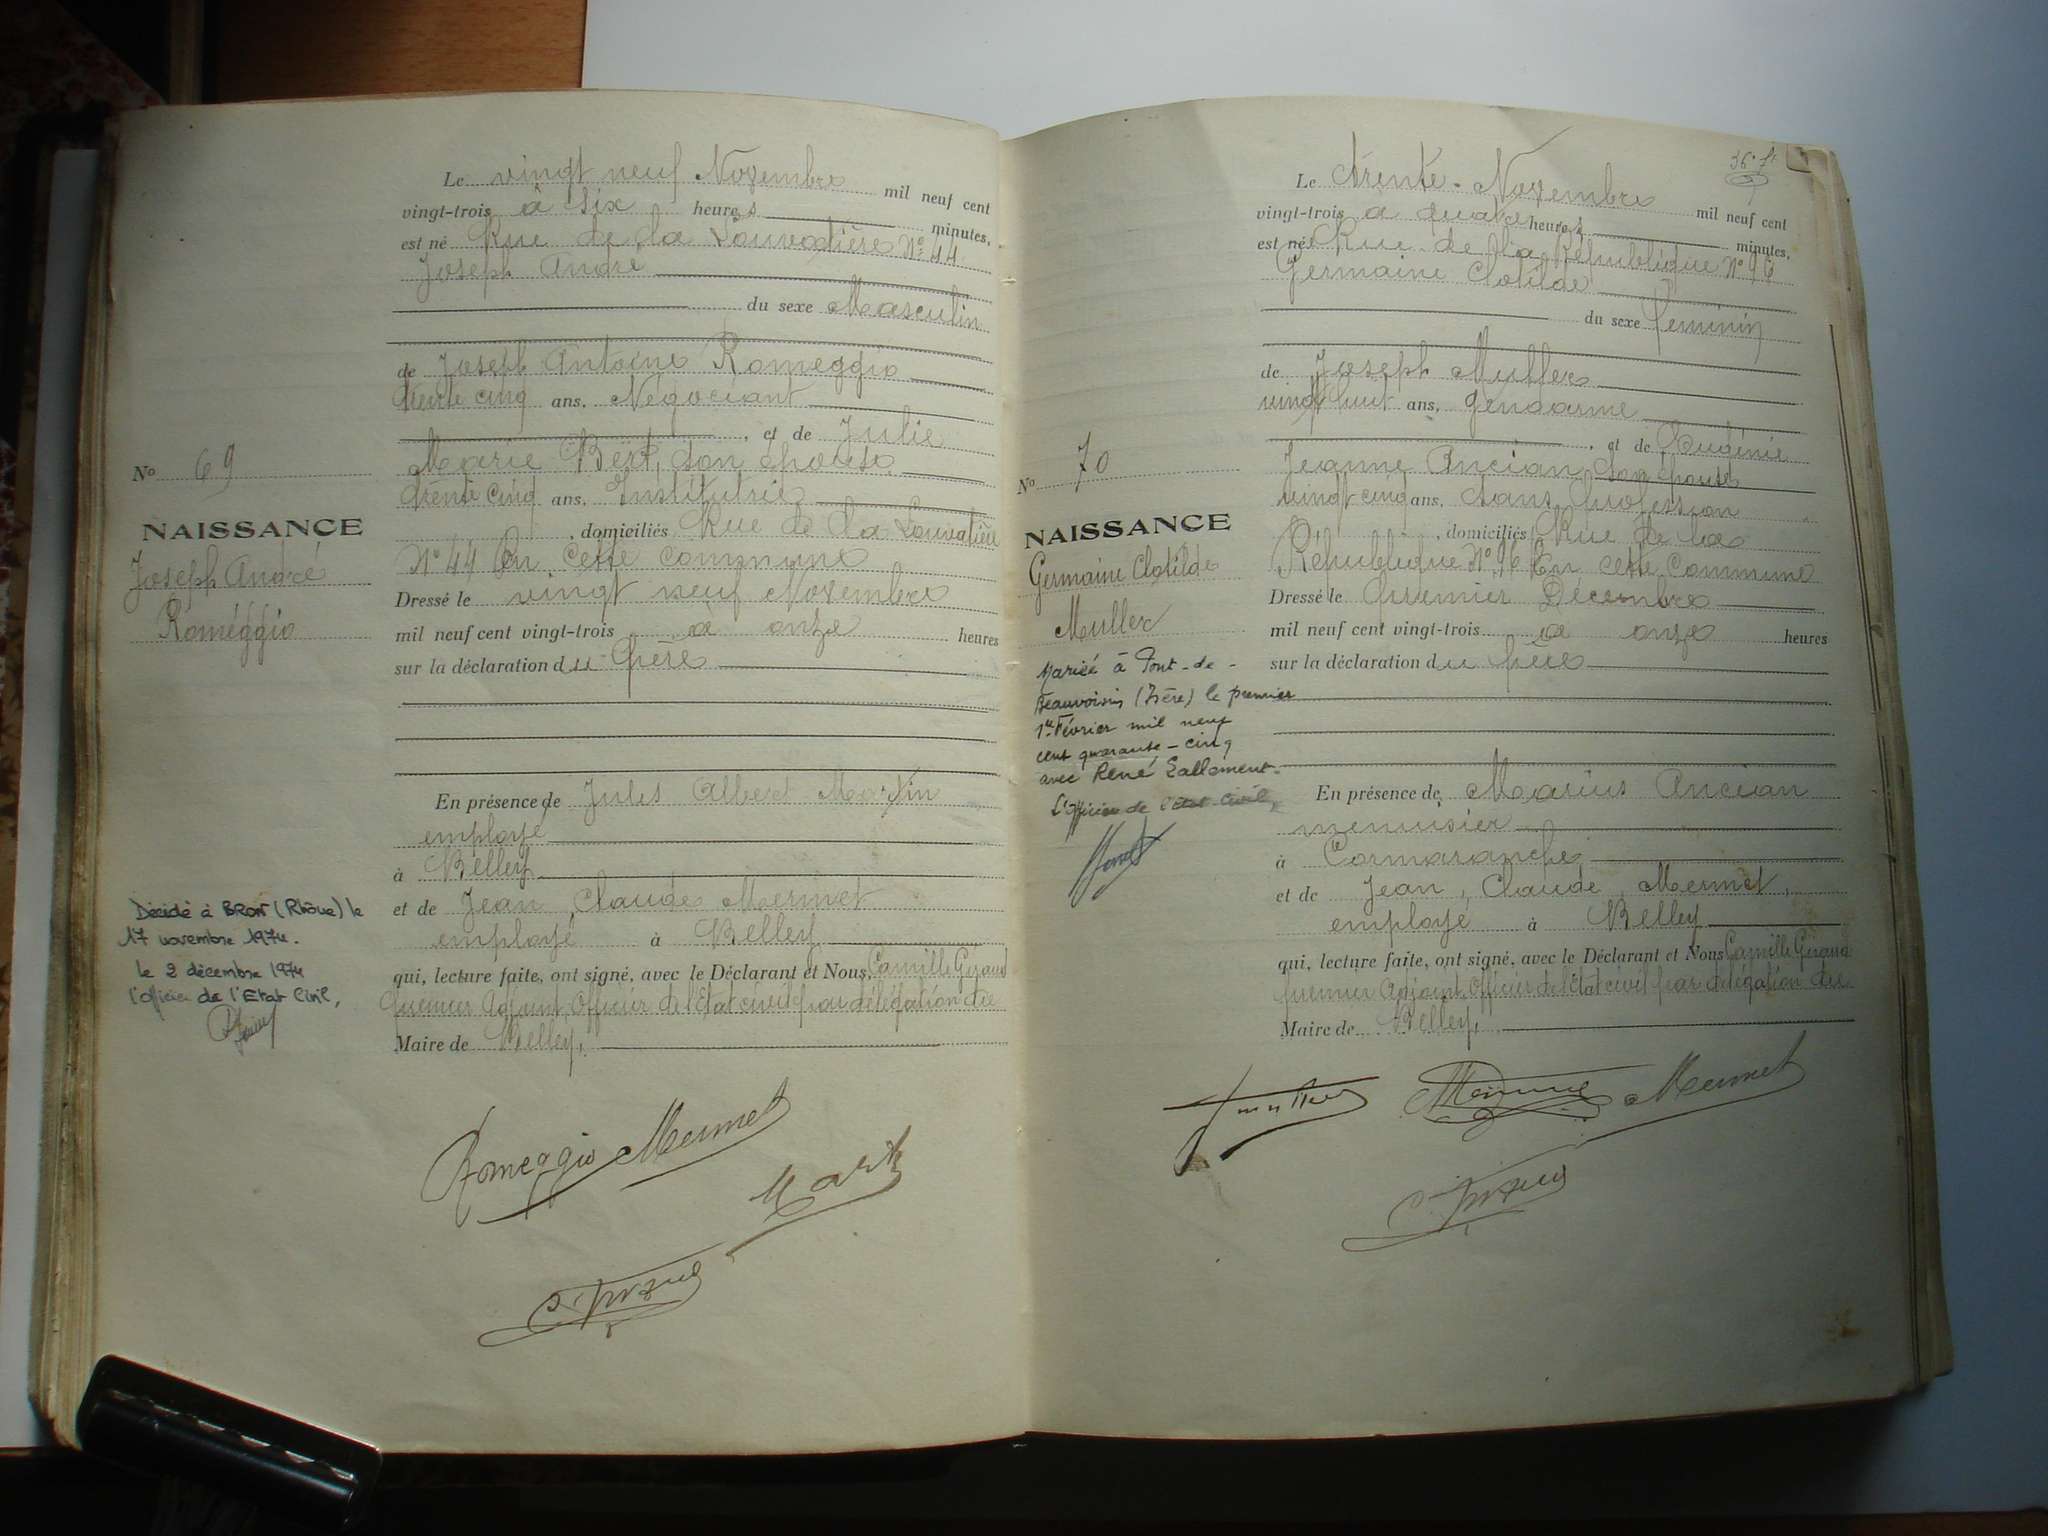 Le vingt neuf Novembre mil neuf cent
vingt-trois à six heures minutes,
est né Rue de la Louvatière N° 44
Joseph André
du sexe Masculin
de Joseph Antoine Roméggio
trente cinq ans, Négociant
, et de Julie
Marie Bert, son épouse
trente cinq ans, Institutrice
, domiciliés Rue de la Louvatière
N° 44 En cette commune
Dressé le vingt neuf Novembre
mil neuf cent vingt-trois à onze heures
sur la déclaration du père
En présence de Jules Albert Martin
employé
à Belley
et de Jean Claude Mermet
employé à Belley
qui, lecture faite, ont signé, avec le Déclarant et Nous, Camille Giraud
premier Adjoint, Officier de l'Etat civil par délégation du
Maire de Belley,
N° 69
NAISSANCE
Joseph André
Roméggio
Décédé à BRON (Rhône) le
17 novembre 1974.
le 2 décembre 1974
l'officier de l'Etat Civil,
Romeggio Mermet
Martin
36e ft
Le trente Novembre mil neuf cent
vingt-trois à quatre heures minutes,
est née Rue de la République N° 96
Germaine Clotilde
du sexe féminin
de Joseph Muller
vingt huit ans, gendarme
, et de Eugénie
Jeanne Ancian son épouse
vingt cinq ans, sans profession
, domiciliés Rue de la
République N° 96 En cette commune
Dressé le premier Décembre
mil neuf cent vingt-trois à onze heures
sur la déclaration du père
En présence de Marius Ancian
menuisier
à Cormaranche
et de Jean, Claude, Mermet,
employé à Belley
qui, lecture faite, ont signé, avec le Déclarant et Nous Camille Giraud
premier Adjoint, Officier de l'Etat civil par délégation du
Maire de Belley,
N° 70
NAISSANCE
Germaine Clotilde
Muller
Mariée à Pont-de-
Beauvoisin (Isère) le premier
1er Février mil neuf
cent quarante-cinq
avec René Lallement.
L'officier de l'Etat Civil,
Mermet